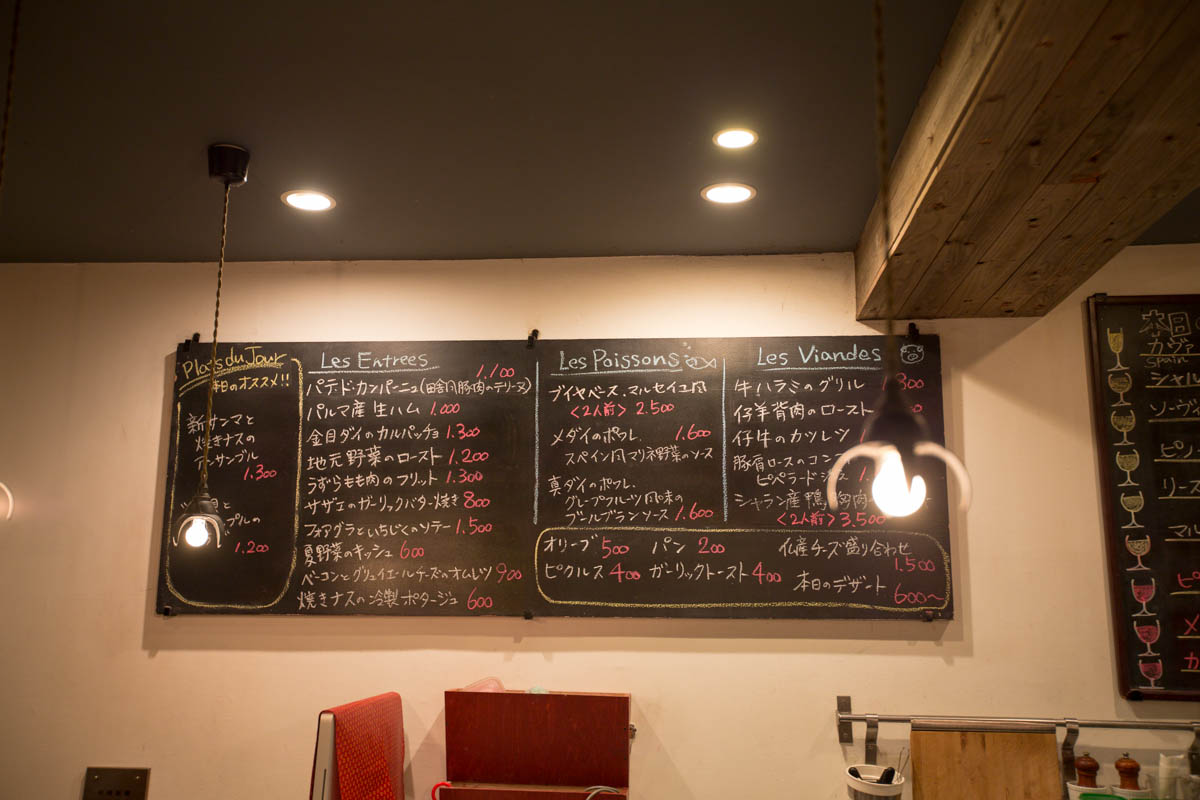 Plats du Jour
本日のオススメ!!
新サンマと
焼きナスの
アンサンブル
1.300
1.200
Les Entrees
1.100
パテド・カンパーニュ(田舎風豚肉のテリーヌ)
パルマ産生ハム 1.000
金目ダイのカルパッチョ 1.300
地元野菜のロースト 1.200
うずらもも肉のフリット 1.300
サザエのガーリックバター焼き 800
フォアグラといちじくのソテー 1.500
夏野菜のキッシュ 600
ベーコンとグリュイエールチーズのオムレツ 900
焼きナスの冷製ポタージュ 600
Les Poissons
ブイヤベース、マルセイユ風
<2人前> 2.500
メダイのポワレ、 1.600
スペイン風マリネ野菜のソース
真ダイのポワレ、
グレープフルーツ風味の
ブールブランソース 1.600
Les Viandes
牛ハラミのグリル
仔羊背肉のロースト
仔牛のカツレツ
豚肩ロースのコンフィ
ピペラード
シャラン産鴨胸肉
<2人前> 3.500
オリーブ 500 パン 200 仏産チーズ盛り合わせ
1.500
ピクルス 400 ガーリックトースト 400 本日のデザート 600〜
本日
カヴァ
Spain
シャル
ソーヴィ
ピノ
リース
ピ
メ
カ